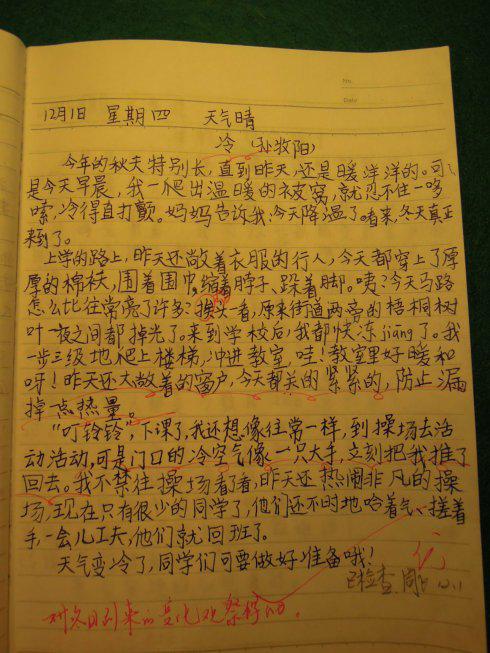 No.
Date
12月1日 星期四 天气晴
冷 (孙牧阳)
今年的秋天特别长，直到昨天，还是暖洋洋的。可
是今天早晨，我一爬出温暖的被窝，就忍不住一哆
嗦，冷得直打颤。妈妈告诉我：今天降温了。看来，冬天真正
来到了。
上学的路上，昨天还敞着衣服的行人，今天都穿上了厚
厚的棉袄，围着围巾，缩着脖子、跺着脚。咦？今天马路
怎么比往常亮了许多？抬头一看，原来街道两旁的梧桐树
叶一夜之间都掉光了。来到学校后，我都快冻jiāng了。我
一步三级地爬上楼梯，冲进教室，哇！教室里好暖和
呀！昨天还大敞着的窗户，今天都关的紧紧的，防止漏
掉一点热量。
“叮铃铃”，下课了，我还想像往常一样，到操场去活
动活动，可是门口的冷空气像一只大手，立刻把我推了
回去。我不禁往操场看了看，昨天还热闹非凡的操
场，现在只有很少的同学了，他们还不时地哈着气、搓着
手，一会儿工夫，他们就回班了。
天气变冷了，同学们可要做好准备哦！
优
已检查 12.1
对冬日到来的变化观察特别